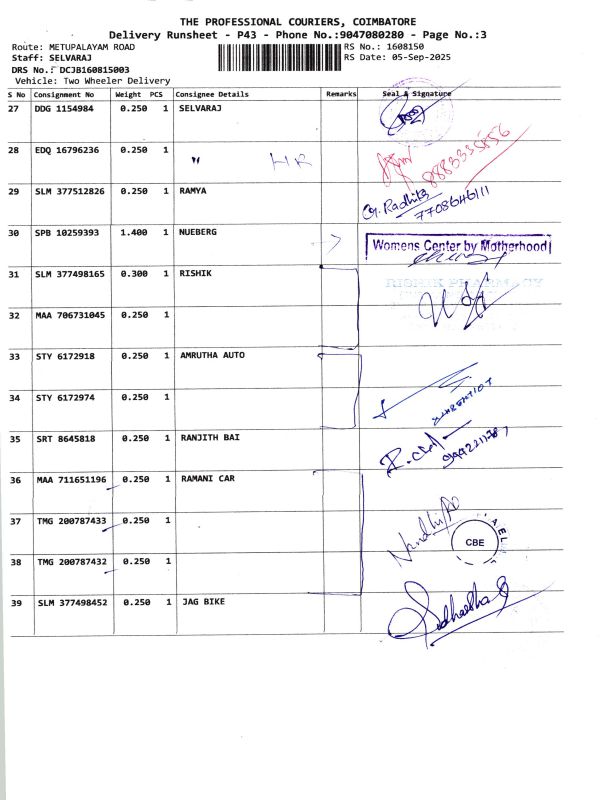 THE PROFESSIONAL COURIERS, COIMBATORE
Delivery Runsheet - P43 - Phone No.:9047080280 - Page No.:3
Route: METUPALAYAM ROAD RS No.: 1608150
Staff: SELVARAJ RS Date: 05-Sep-2025
DRS No.: DCJB160815003
Vehicle: Two Wheeler Delivery
S No Consignment No Weight PCS Consignee Details Remarks Seal & Signature
27 DDG 1154984 0.250 1 SELVARAJ
28 EDQ 16796236 0.250 1 " HR 8883335856
29 SLM 377512826 0.250 1 RAMYA G. Radhika 7708646111
30 SPB 10259393 1.400 1 NUEBERG Womens Center by Motherhood
31 SLM 377498165 0.300 1 RISHIK RISHIK PHARMACY
32 MAA 706731045 0.250 1
33 STY 6172918 0.250 1 AMRUTHA AUTO
34 STY 6172974 0.250 1
35 SRT 8645818 0.250 1 RANJITH BAI
36 MAA 711651196 0.250 1 RAMANI CAR
37 TMG 200787433 0.250 1 CBE
38 TMG 200787432 0.250 1
39 SLM 377498452 0.250 1 JAG BIKE